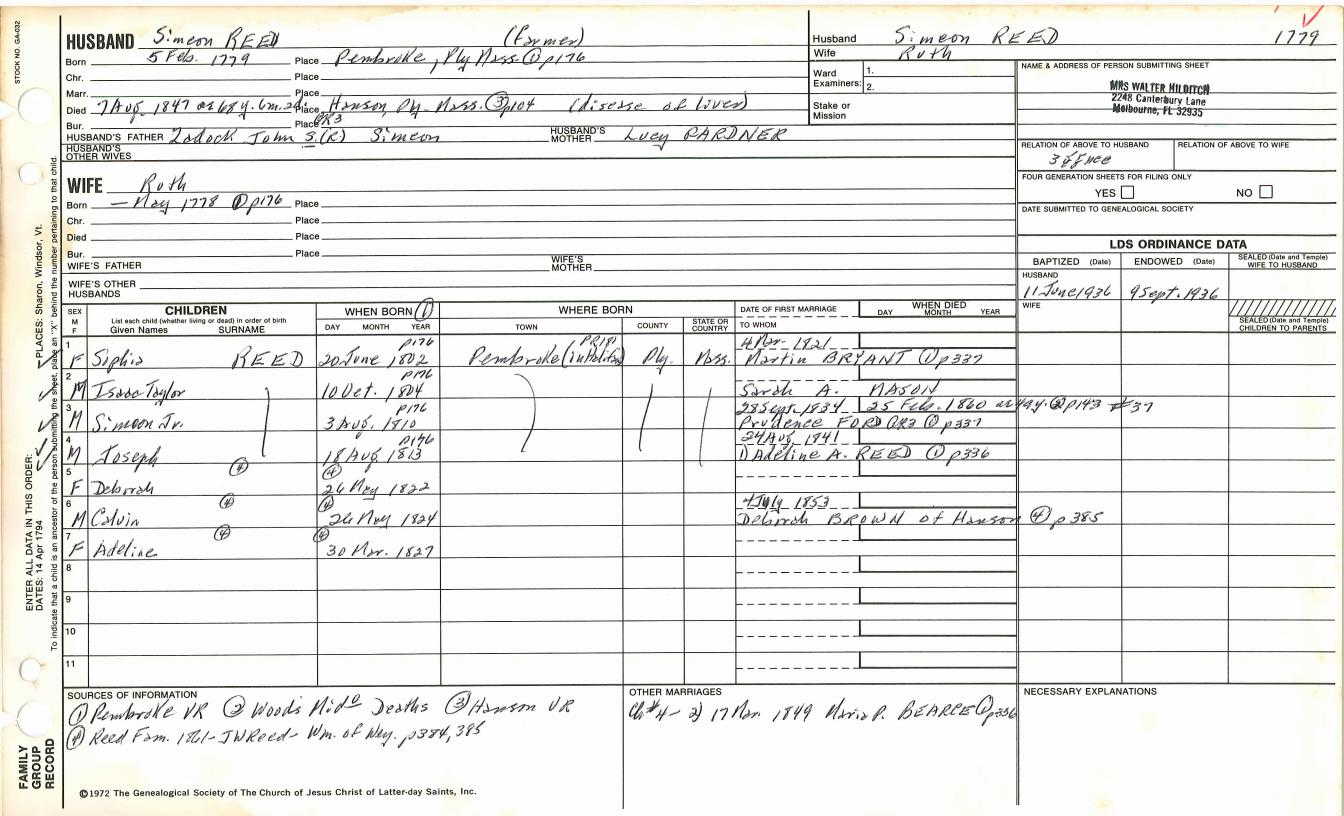 STOCK NO. GA-032
HUSBAND Simeon REED (farmer)
Born 5 Feb. 1779 Place Pembroke, Ply Mass. ① p176
Chr. Place
Marr. Place
Died 7 Aug. 1847 ae 68 y. 6m. 2d. Place Hanson, Ply. Mass. ③ p104 (disease of liver)
Bur. Place GR3
HUSBAND'S FATHER Zadock John S. (R) Simeon HUSBAND'S MOTHER Lucy GARDNER
HUSBAND'S OTHER WIVES
WIFE Ruth
Born — May 1778 ① p176 Place
Chr. Place
Died Place
Bur. Place
WIFE'S FATHER WIFE'S MOTHER
WIFE'S OTHER HUSBANDS
Husband Simeon REED 1779
Wife Ruth
Ward Examiners: 1.
2.
Stake or Mission
NAME & ADDRESS OF PERSON SUBMITTING SHEET
MRS WALTER HILDITCH
2248 Canterbury Lane
Melbourne, FL 32935
RELATION OF ABOVE TO HUSBAND RELATION OF ABOVE TO WIFE
FOUR GENERATION SHEETS FOR FILING ONLY
YES NO
DATE SUBMITTED TO GENEALOGICAL SOCIETY
LDS ORDINANCE DATA
BAPTIZED (Date) ENDOWED (Date) SEALED (Date and Temple) WIFE TO HUSBAND
HUSBAND
11 June 1936 9 Sept. 1936
WIFE
SEALED (Date and Temple) CHILDREN TO PARENTS
SEX M F
CHILDREN
List each child (whether living or dead) in order of birth
Given Names SURNAME
WHEN BORN ①
DAY MONTH YEAR
WHERE BORN
TOWN COUNTY STATE OR COUNTRY
DATE OF FIRST MARRIAGE
TO WHOM
WHEN DIED
DAY MONTH YEAR
1 p176 PR181 4 Mar. 1821
F Siphia REED 20 June 1802 Pembroke (in Halifax) Ply. Mass. Martin BRYANT ① p337
2 p176
M Isaac Taylor 10 Oct. 1804 Sarah A. MASON
3 p176 28 Sept. 1834 25 Feb. 1860 ② p143 #37
M Simeon Jr. 3 Aug. 1810 Prudence FORD ① p337
4 p176 24 Aug. 1841
M Joseph 18 Aug 1813 1) Adeline A. REED ① p336
5 ④ ④
F Deborah 26 May 1822
6 ④ ④ 4 July 1853
M Calvin 26 May 1824 Deborah BROWN of Hanson ④ p385
7 ④ ④
F Adeline 30 Mar. 1827
8
9
10
11
SOURCES OF INFORMATION
① Pembroke VR ② Wood's Midº Deaths ③ Hanson VR
④ Reed Fam. 1861- JWReed- Wm. of Wey. p384, 385
OTHER MARRIAGES
Ch #4 - 2) 17 Mar. 1849 Maria P. BEARCE ① p336
NECESSARY EXPLANATIONS
©1972 The Genealogical Society of The Church of Jesus Christ of Latter-day Saints, Inc.
FAMILY GROUP RECORD
ENTER ALL DATA IN THIS ORDER:
DATES: 14 Apr 1794 PLACES: Sharon, Windsor, Vt.
To indicate that a child is an ancestor of the person submitting the sheet, place an "X" behind the number pertaining to that child.